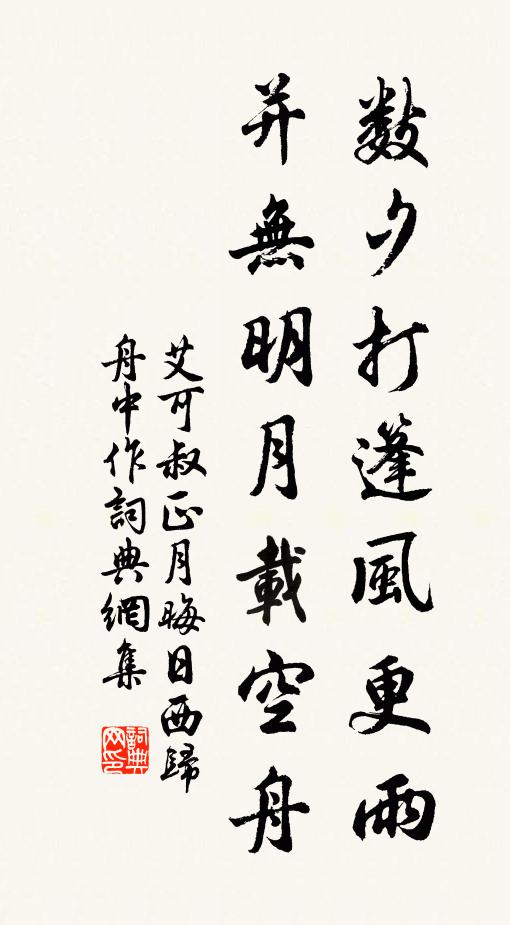 数夕打篷風更雨
并無明月載空舟
艾可叔正月晦日西歸
舟中作詞典網集
詞典網印